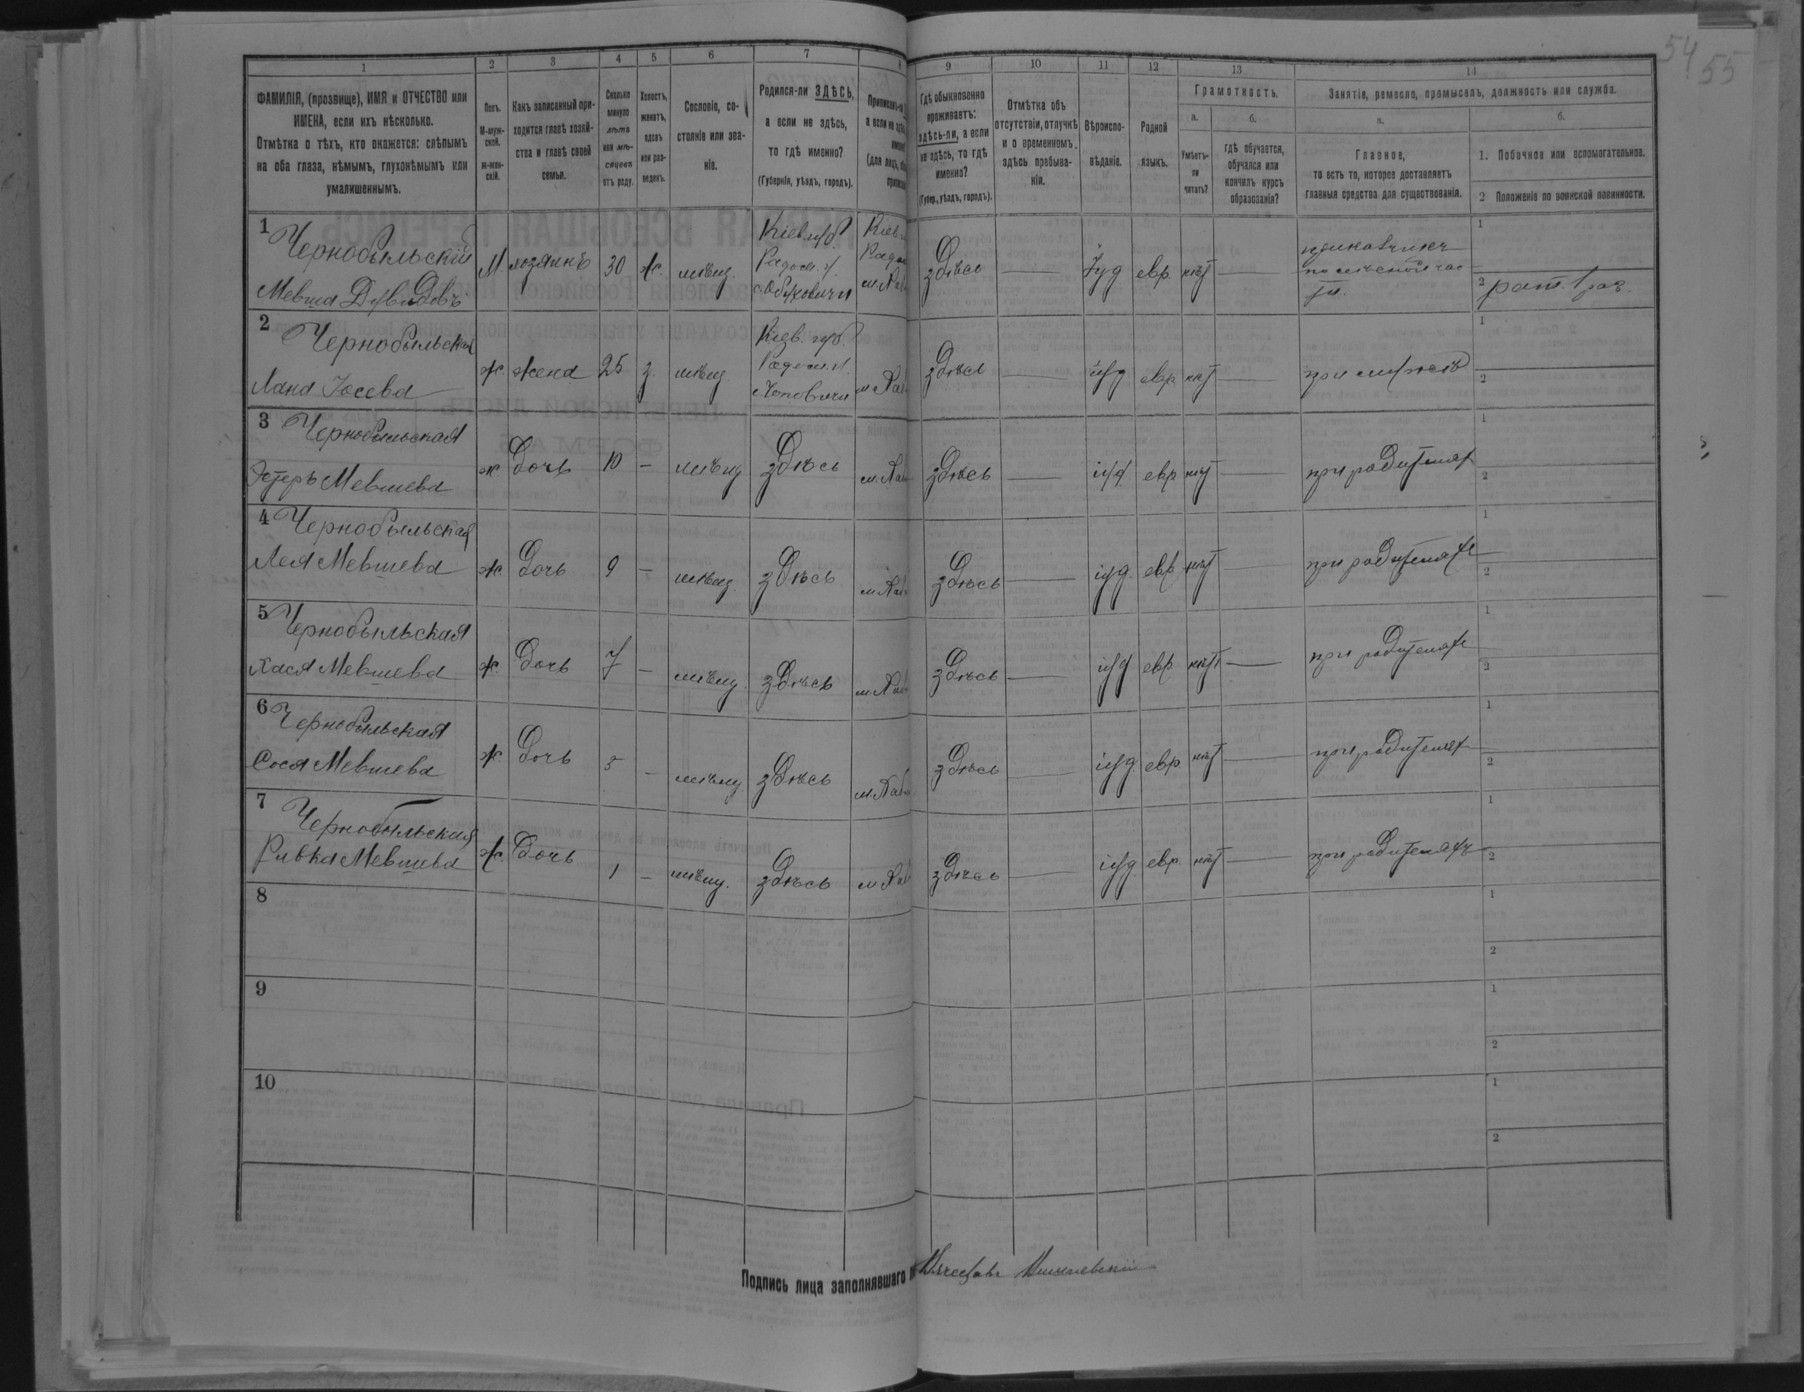 54 55
1 2 3 4 5 6 7 8 9 10 11 12 13 14
ФАМИЛІЯ, (прозвище), ИМЯ и ОТЧЕСТВО или ИМЕНА, если ихъ нѣсколько.
Отмѣтка о тѣхъ, кто окажется: слѣпымъ на оба глаза, нѣмымъ, глухонѣмымъ или умалишеннымъ.
Полъ.
М-муж-
ской.
ж-жен-
скій.
Какъ записанный при-
ходится главѣ хозяй-
ства и главѣ своей
семьи.
Сколько
минуло
лѣтъ
или мѣ-
сяцевъ
отъ роду.
Холостъ,
женатъ,
вдовъ
или раз-
веденъ.
Сословіе, со-
стояніе или зва-
ніе.
Родился-ли ЗДѢСЬ,
а если не здѣсь,
то гдѣ именно?
(Губернія, уѣздъ, городъ).
Гдѣ обыкновенно
проживаетъ:
здѣсь-ли, а если
не здѣсь, то гдѣ
именно?
(Губер., уѣздъ, городъ).
Отмѣтка объ
отсутствіи, отлучкѣ
и о временномъ
здѣсь пребыва-
ніи.
Вѣроиспо-
вѣданіе.
Родной
языкъ.
Грамотность.
а.
Умѣетъ-
ли
читать?
б.
Гдѣ обучается,
обучался или
кончилъ курсъ
образованія?
Занятіе, ремесло, промыселъ, должность или служба.
а.
Главное,
то есть то, которое доставляетъ
главныя средства для существованія.
б.
1. Побочное или вспомогательное.
2 Положеніе по воинской повинности.
1 Чернобыльскій
Мевша Дувидовъ
М хозяинъ 30 ж. мѣщ.
Кіев. губ.
Радом. у.
здѣсь Іуд евр. нѣт
1
2
2 Чернобыльская
Хана Іосева
ж жена 25 з. мѣщ.
Кіев. губ.
Радом. у.
здѣсь іуд евр нѣт при мужѣ
1
2
3 Чернобыльская
Эстеръ Мевшева
ж дочь 10 — мѣщ здѣсь м. Хаб здѣсь іуд евр нѣт при родителях
1
2
4 Чернобыльская
Лея Мевшева
ж. дочь 9 — мѣщ. здѣсь м Хаб здѣсь іуд. евр. нѣт при родителях
1
2
5 Чернобыльская
Хася Мевшева
ж. дочь 7 — мѣщ. здѣсь м Хаб здѣсь іуд евр. нѣт при родителях
1
2
6 Чернобыльская
Сося Мевшева
ж. дочь 5 — мѣщ. здѣсь м Хаб здѣсь іуд. евр. нѣт при родителях
1
2
7 Чернобыльская
Ривка Мевшева
ж. дочь 1 — мѣщ. здѣсь м Хаб здѣсь іуд. евр. нѣт при родителяхъ
1
2
8
1
2
9
1
2
10
1
2
Подпись лица заполнявшаго